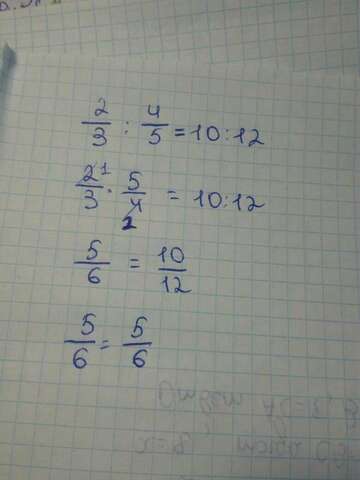 2/3 : 4/5 = 10:12
2 1/3 · 5/4 2 = 10:12
5/6 = 10/12
5/6 = 5/6